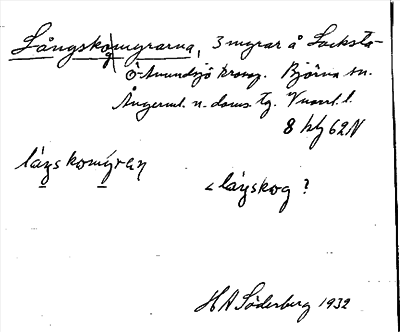 Långskogmyrarna, 3 myrar å Locksta-
Ö-Anundsjö kronop. Björna sn.
Ångerml. n. doms. tg. Vnorrl. l.
8 hlj 62N
låŋskomy̆ran
< låŋskog ?
H A Söderberg 1932